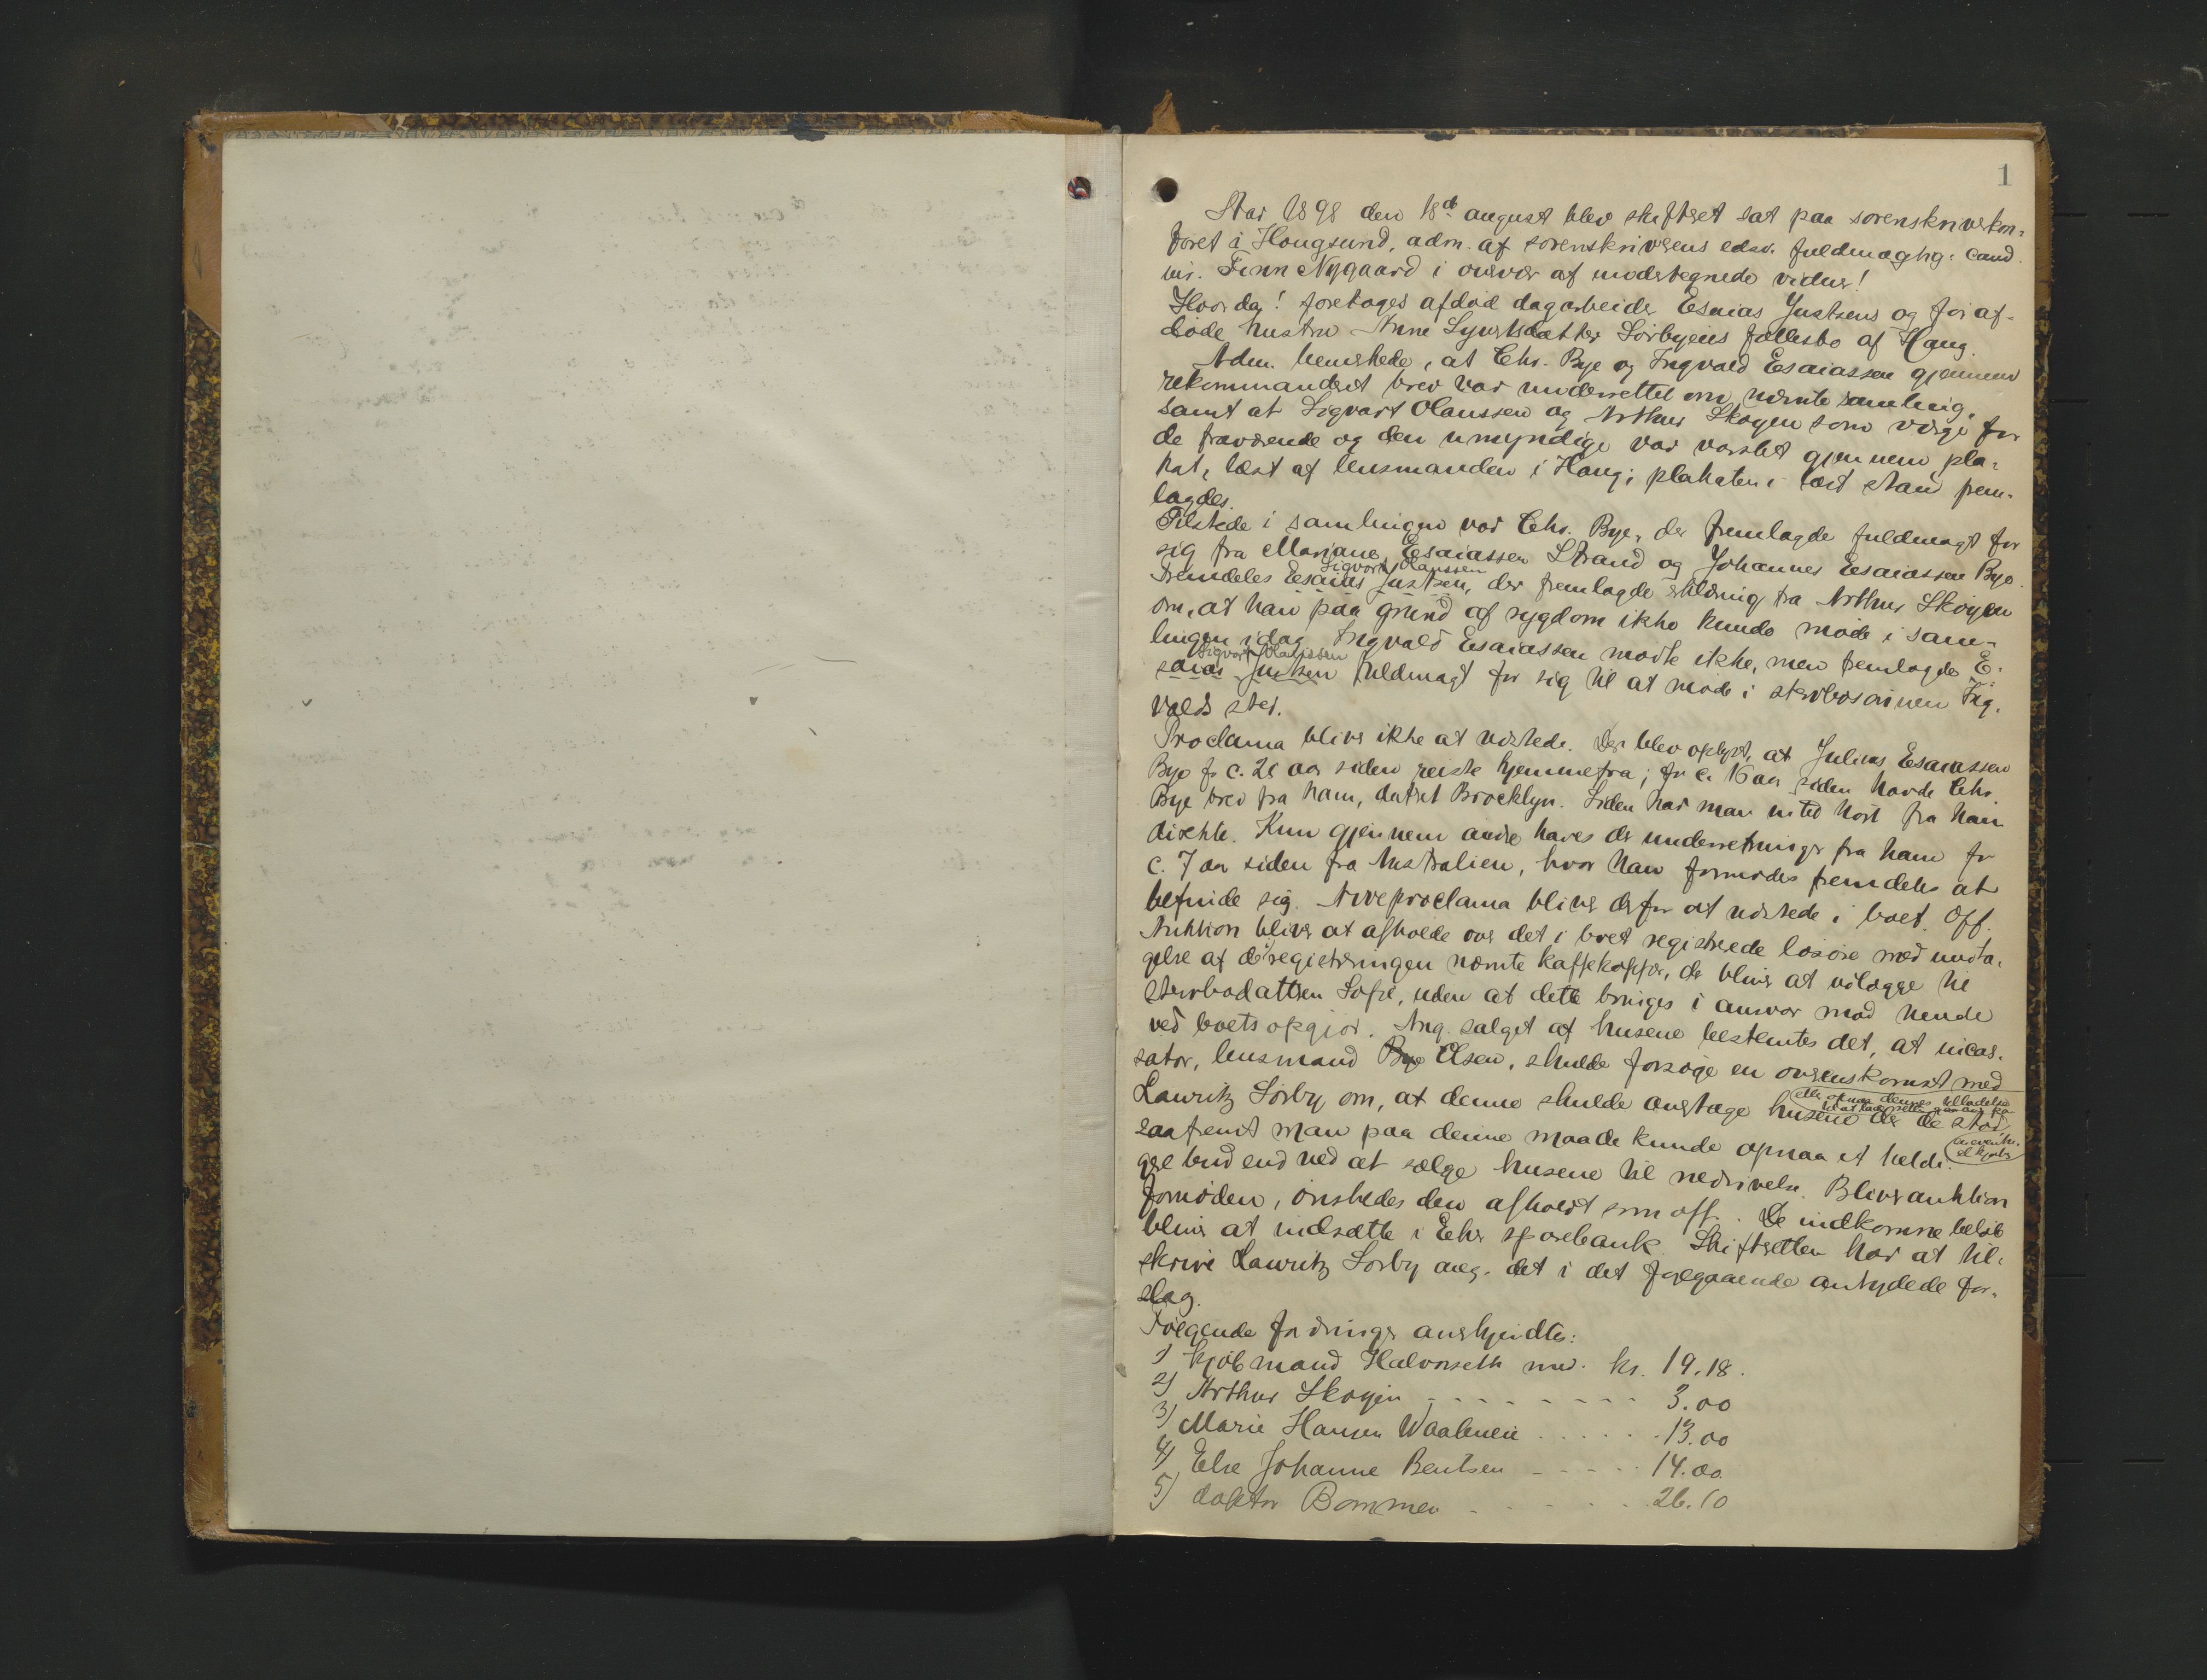 1
Aar 1898 den 18de august blev skifteret sat paa sorenskriverkon-
toret i Hougsund, adm. af sorenskriverens edsv. fuldmægtig cand.
jur. Finn Nygaard i overvær af undertegnede vidner!
Hvorda! foretages afdød dagarbeider Esaias Justsens og før af-
døde hustru Anne Syvertsdatter Sørbyeiets fællesbo af Haug.
Adm. bemerkede, at Chr. Bye og Ingvald Esaiassen gjennem
rekommanderet brev var underrettet om nærværende samling,
samt at Sigvart Olaussen og Arthur Skogen som værge for
de fraværende og den umyndige var varslet gjennem pla-
kat, læst af lensmanden i Haug; plakaten i læst stand frem-
lagdes.
Tilstede i samlingen var Chr. Bye, der fremlagde fuldmagt for
sig fra Mariane Esaiassen Strand og Johannes Esaiassen Bye.
Sigvart Olaussen
Fremdeles Esaias Justsen, der fremlagde erklæring fra Arthur Skogen
om, at han paa grund af sygdom ikke kunde møde i sam-
lingen idag. Ingvald Esaiassen mødte ikke, men fremlagde E-
Sigvart Olaussen
saias Justsen fuldmagt for sig til at møde i stervbosønnen Ing-
valds sted.
Proclama bliver ikke at udstede. Der blev oplyst, at Julius Esaiassen
Bye for c. 28 aar siden reiste hjemmefra; for c. 16 aar siden havde Chr.
Bye brev fra ham, datert Brocklyn. Siden har man intet hørt fra ham
direkte. Kun gjennem andre haves der underretninger fra ham for
c. 7 aar siden fra Australien, hvor han formodes fremdeles at
befinde sig. Arveproclama bliver derfor at udstede i boet. Off.
Auktion bliver at afholde over det i boet registrerede løsøre med undta-
gelse af de i registreringen nævnte kaffekopper, der bliver at udlægge til
stervbodatteren Sofie, uden at dette bringes i ansvar mod hende
ved boets opgjør. Ang. salget af husene bestemtes det, at incas-
sator, lensmand Bye Olsen, skulde forsøge en overenskomst med
Lauritz Sørby om, at denne skulde overtage husene der de stod
eller opnaa dennes tilladelse
til at lade
saafremt man paa denne maade kunde opnaa et heldi-
gere bud end ved at sælge husene til nedrivelse. Bliver auktion
fornøden, ønskedes den afholdt som off. De indkomne beløb
bliver at indsætte i Eker sparebank. Skifteretten har at til-
skrive Lauritz Sørby ang. det i det foregaaende antydede for-
slag.
Følgende fordringer anerkjendtes:
1) Kjøbmand Halvorseth med kr. 19.18.
2) Arthur Skogen - - - - - - - - 3.00
3) Marie Hansen Waalmeie . . . . . 13.00
4) Else Johanne Bentsen - - - - 14.00
5) doktor Bommen - - - - - 26.10